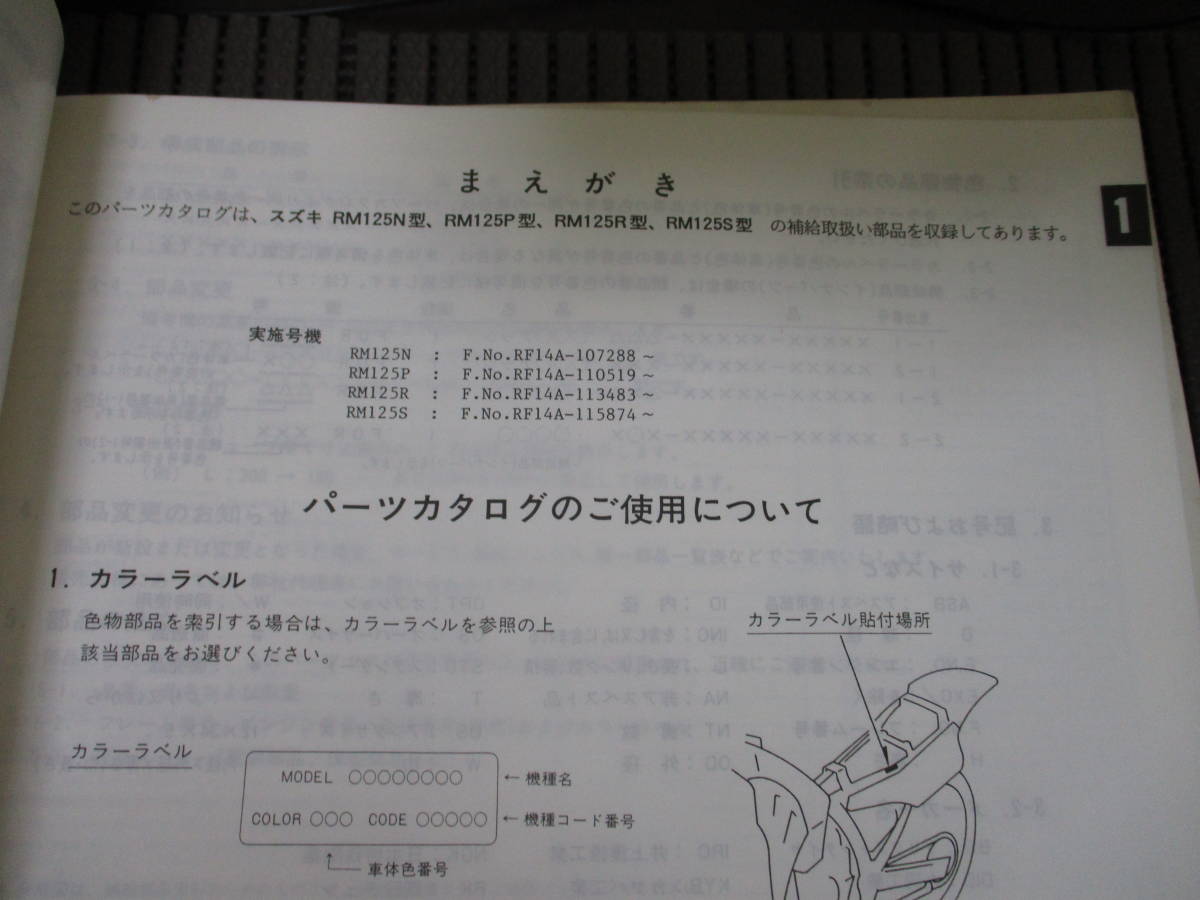 まえがき
1
このパーツカタログは、スズキ RM125N型、RM125P型、RM125R型、RM125S型 の補給取扱い部品を収録してあります。
実施号機
RM125N : F.No.RF14A-107288～
RM125P : F.No.RF14A-110519～
RM125R : F.No.RF14A-113483～
RM125S : F.No.RF14A-115874～
パーツカタログのご使用について
1. カラーラベル
色物部品を索引する場合は、カラーラベルを参照の上
該当部品をお選びください。
カラーラベル貼付場所
カラーラベル
MODEL ○○○○○○○○ ←機種名
COLOR ○○○ CODE ○○○○○ ←機種コード番号
車体色番号